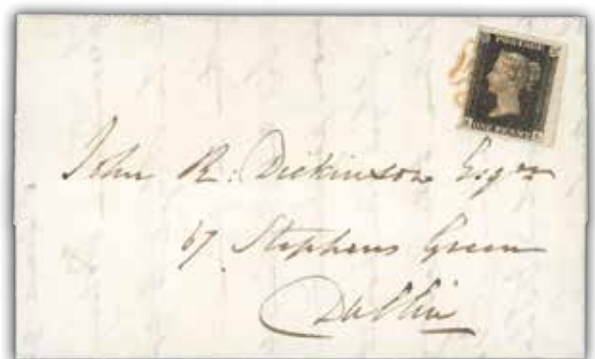 POSTAGE
ONE PENNY
John R. Dickinson Esqre
67 Stephens Green
Dublin